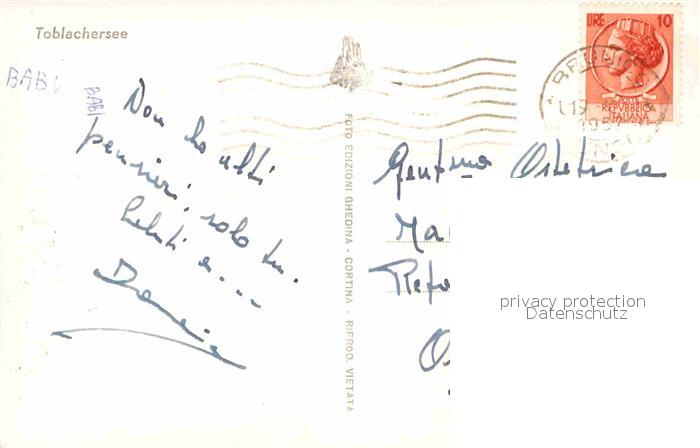 Toblachersee
BABI
BABI
Non ho altri
pensieri, solo tu.
Saluti a...
FOTO EDIZIONI GHEDINA - CORTINA - RIPROD. VIETATA
LIRE 10
REPVBBLICA
ITALIANA
19
1957
Gent.ma Ostetrica
privacy protection
Datenschutz